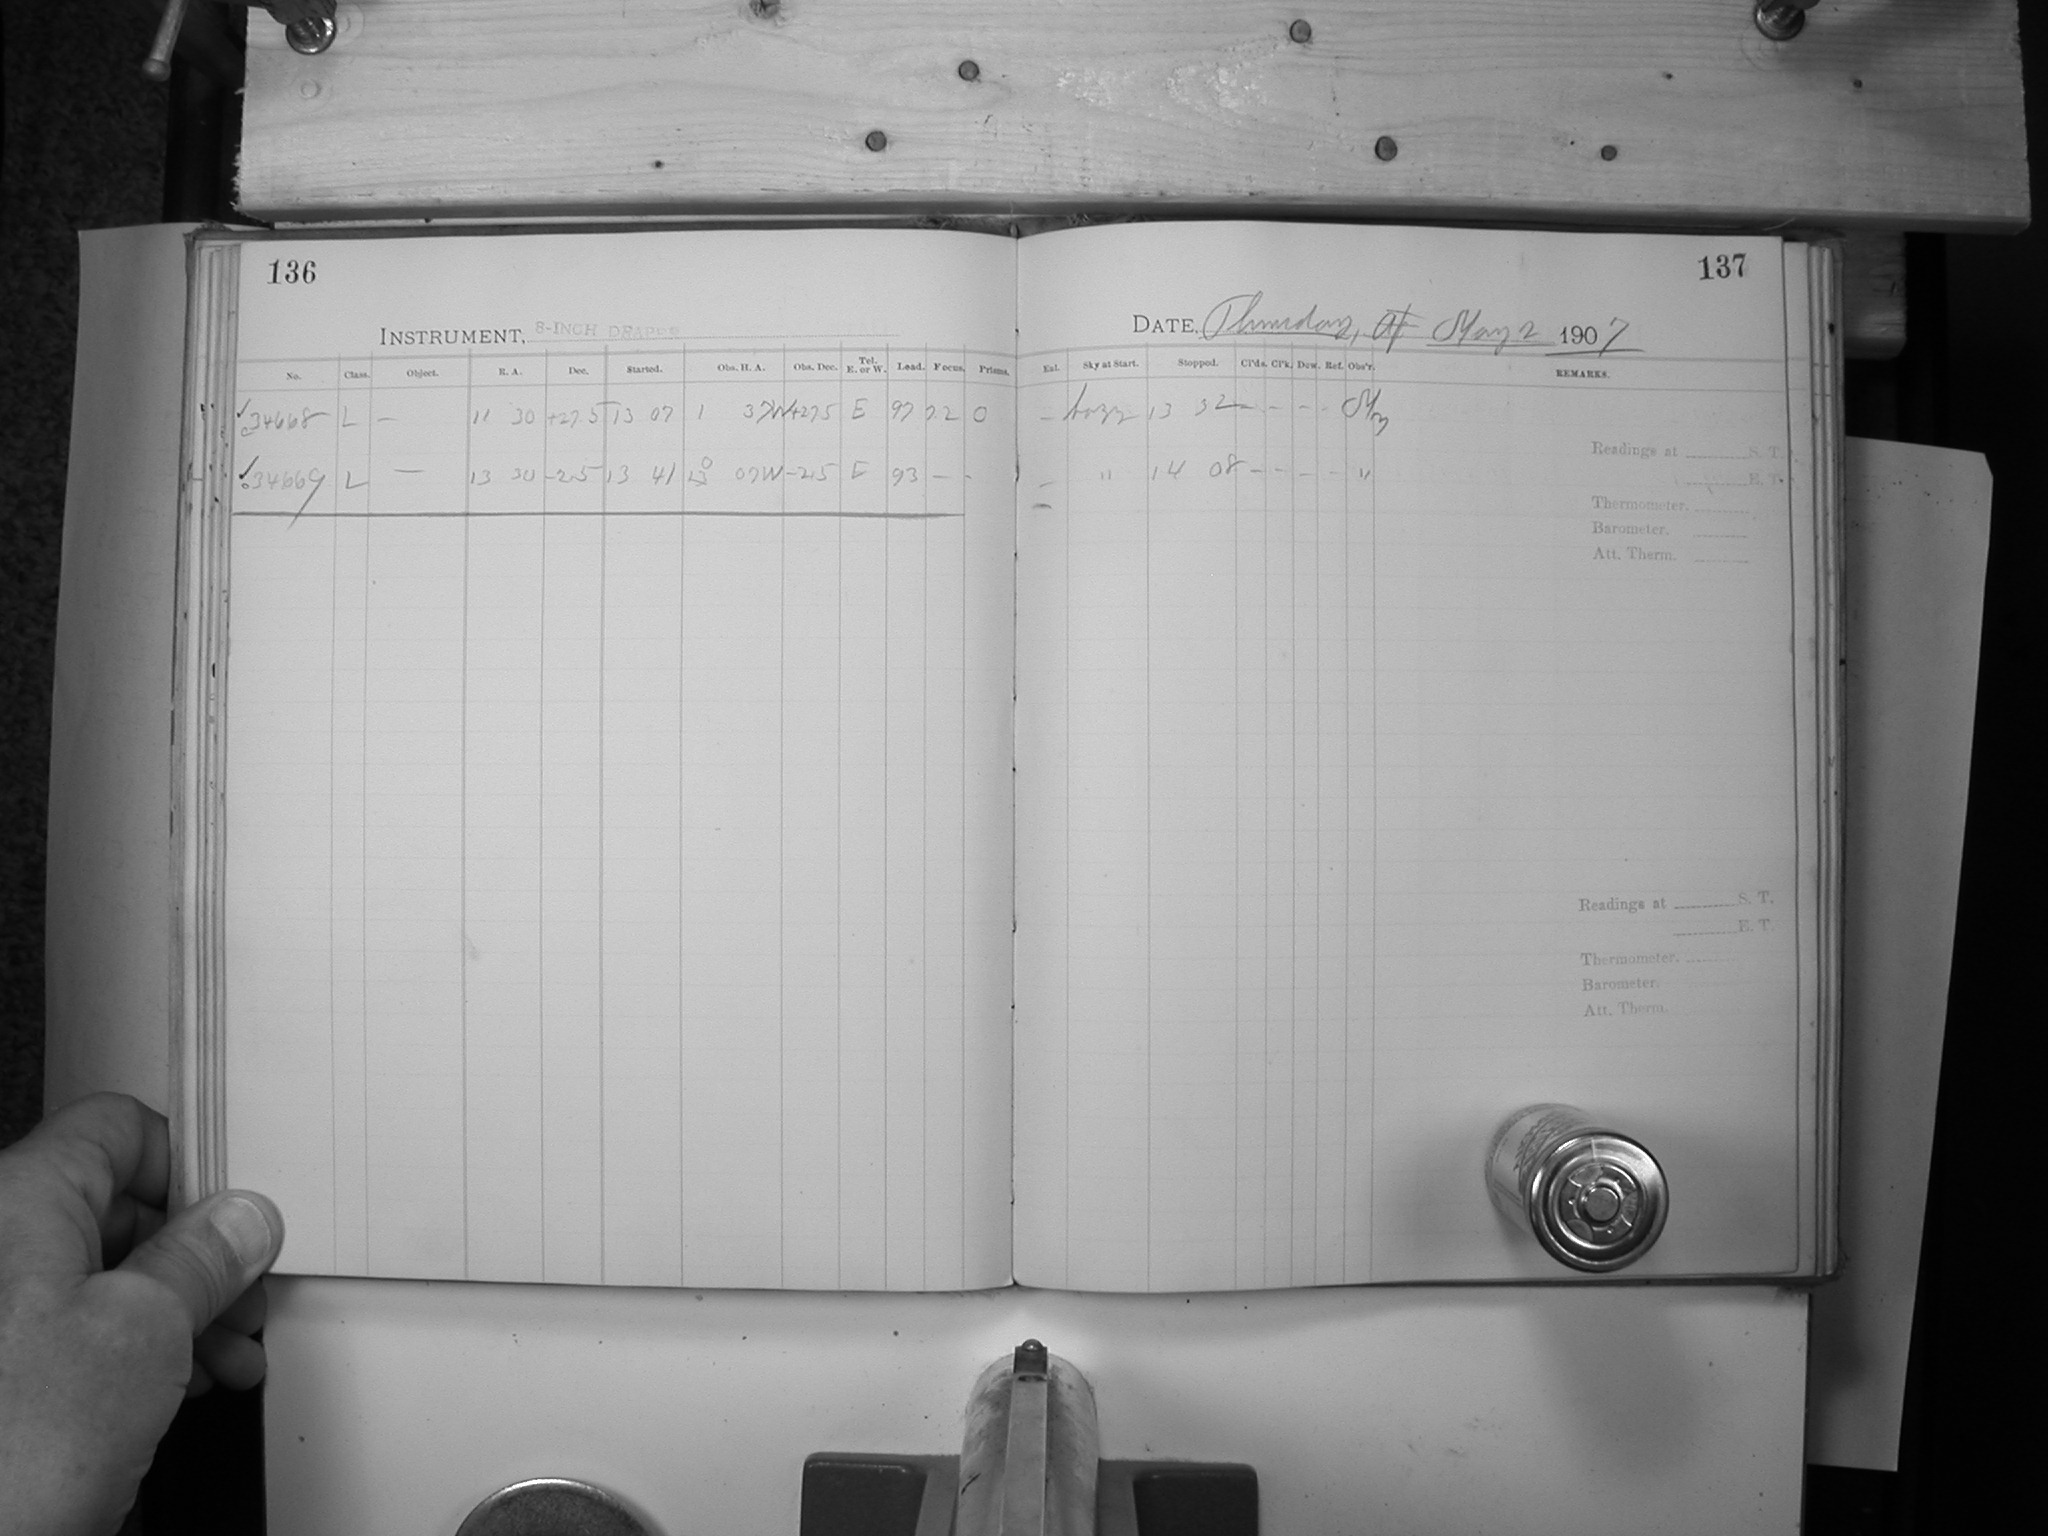 136
INSTRUMENT, 8-INCH DRAPER
No. Class. Object. R. A. Dec. Started. Obs. H. A. Obs. Dec. Tel. E. or W. Load. Focus. Prisms.
✓ 34668 L — 11 30 +27.5 13 07 1 37W +27.5 E 97 7.2 0
✓ 34669 L — 13 30 -2.5 13 41 0 07W -2.5 E 93 - -
137
DATE, Thursday, May 2 1907
Ext. Sky at Start. Stopped. Cl'ds. Cl'k. Dew. Ref. Obs'r. REMARKS.
– hazy 13 32 - - - -
– " 14 08 - - - - "
Readings at S. T.
E. T.
Thermometer.
Barometer.
Att. Therm.
Readings at S. T.
E. T.
Thermometer.
Barometer.
Att. Therm.